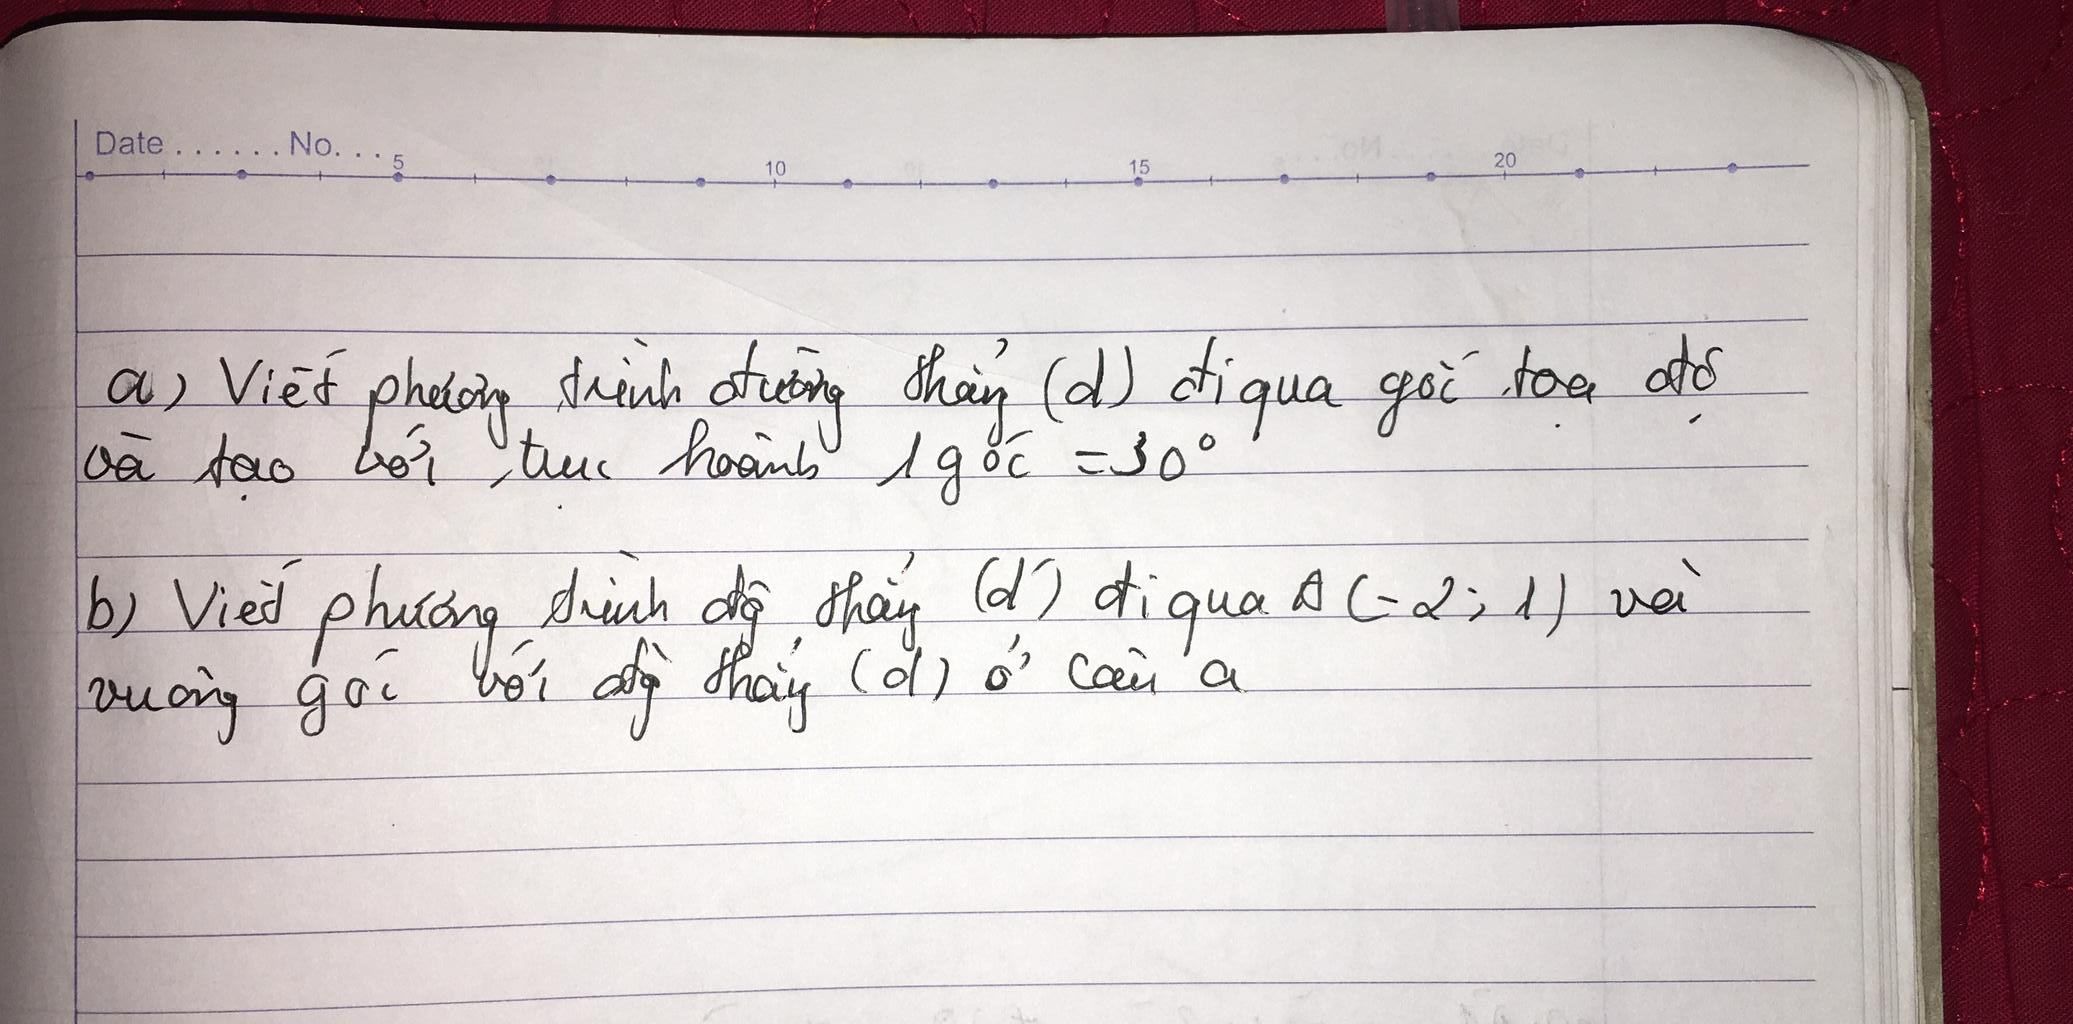 Date ...... No. ... 5 10 15 20
a) Viết phương trình đường thẳng (d) đi qua gốc tọa độ
và tạo với trục hoành 1 góc = 30°
b) Viết phương trình đg thẳng (d') đi qua A (-2; 1) và
vuông góc với đg thẳng (d) ở câu a